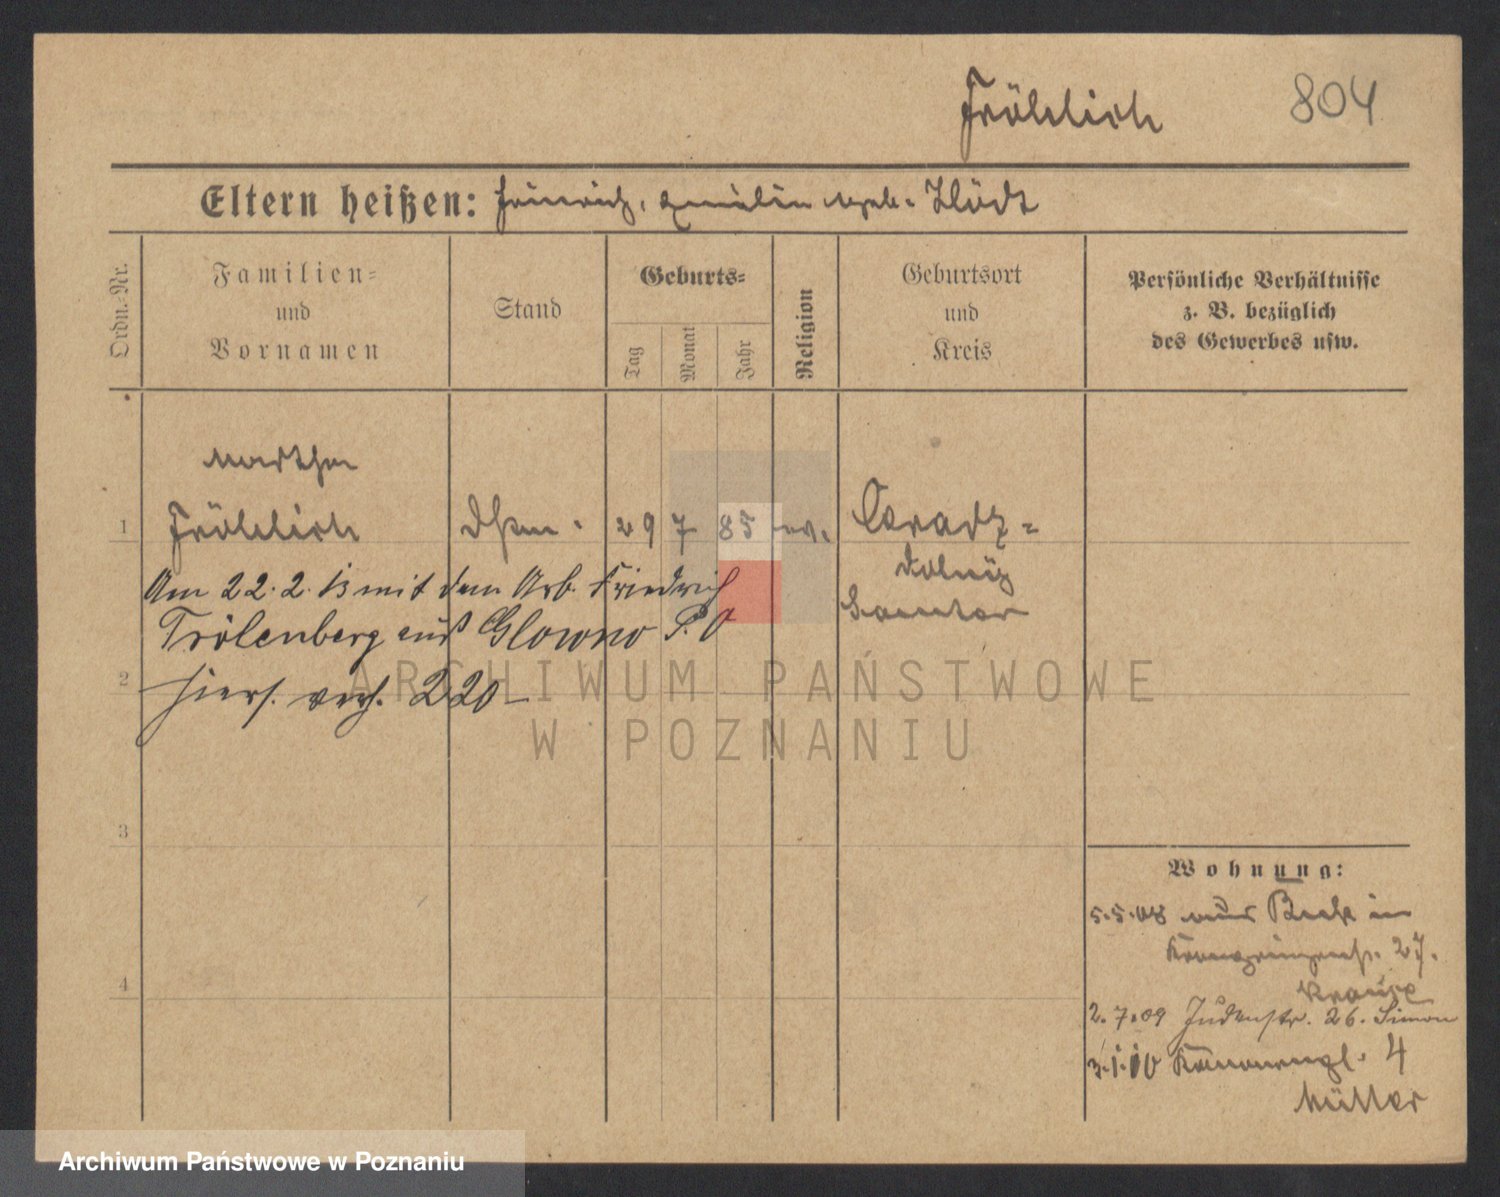 Fröhlich 804
Eltern heißen: Heinrich, Emilie geb. Klödt
Ordn.=Nr.
Familien=
und
Vornamen
Stand
Geburts=
Tag
Monat
Jahr
Religion
Geburtsort
und
Kreis
Persönliche Verhältnisse
z. B. bezüglich
des Gewerbes usw.
Martha
1 Fröhlich 29 7 85 ev. Ceradz=
dolny
Samter
Am 22.2.13 mit dem Arb. Friedrich
Trölenberg aus Glowno P. O
hiers. verh. 220
2
3
4
Wohnung:
5.5.08 aus in
27.
Krause
2.7.09 Judenstr. 26. Simon
3.1.10 Kanonenpl. 4
Müller
ARCHIWUM PAŃSTWOWE
W POZNANIU
Archiwum Państwowe w Poznaniu